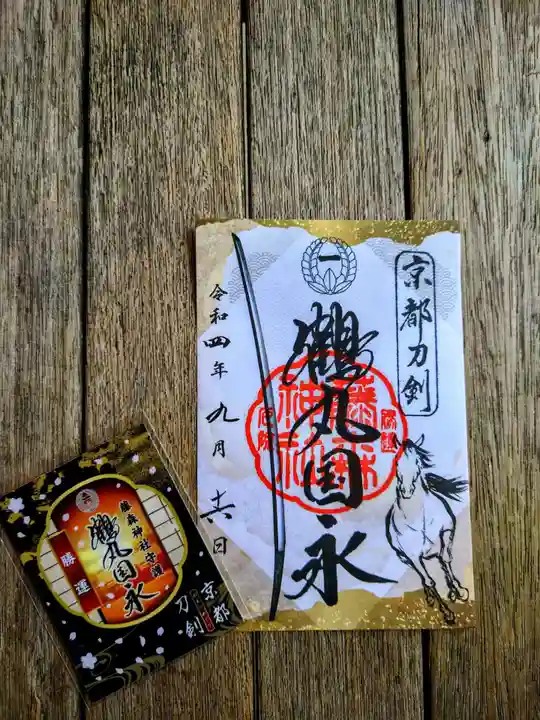 一
京都刀剣
鶴丸国永
藤森
神社
令和四年九月十六日
藤森神社守護
鶴丸国永
勝運
京都
刀剣